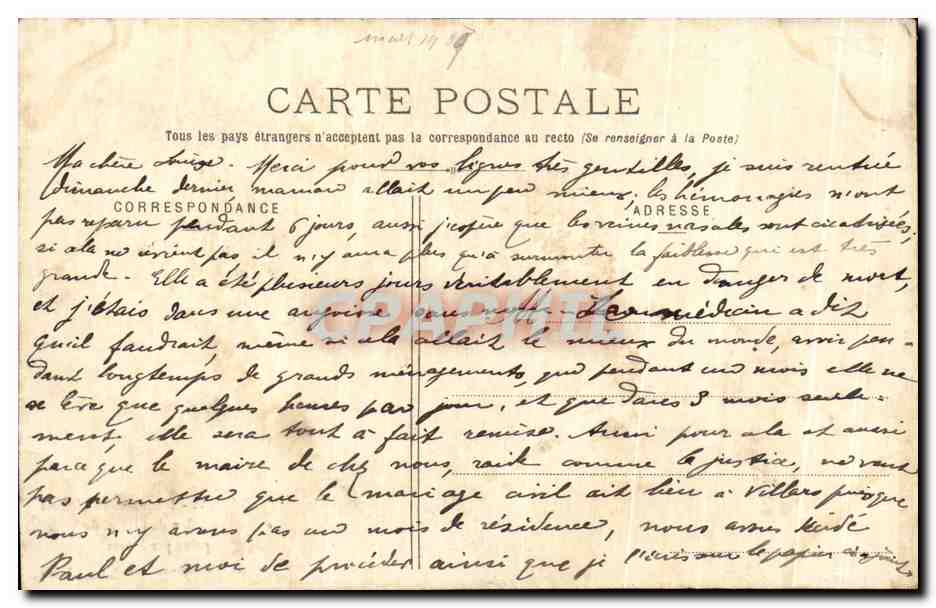 mars 1909
CARTE POSTALE
Tous les pays étrangers n'acceptent pas la correspondance au recto (Se renseigner à la Poste)
Ma chère Louise. Merci pour vos lignes très gentilles, je suis rentrée
dimanche dernier maman allait un peu mieux, les hémorragies n'ont
CORRESPONDANCE
ADRESSE
pas reparu pendant 6 jours, aussi j'espère que les veines nasales sont cicatrisées;
si cela ne revient pas il n'y aura plus qu'à surmonter la faiblesse qui est très
grande. Elle a été plusieurs jours véritablement en danger de mort,
et j'étais dans une angoisse sans Le médecin a dit
qu'il faudrait, même si cela allait le mieux du monde, avoir pen-
dant longtemps de grands ménagements, que pendant un mois elle ne
se lève que quelques heures par jour, et que dans 3 mois seule-
ment, elle sera tout à fait remise. Aussi pour cela et aussi
parce que le maire de chez nous, raide comme la justice, ne veut
pas permettre que le mariage civil ait lieu à Villars puisque
nous n'y avons pas un mois de résidence, nous avons décidé
Paul et moi de procéder ainsi que je l'écris sur le papier ci-joint
CPAPHIL